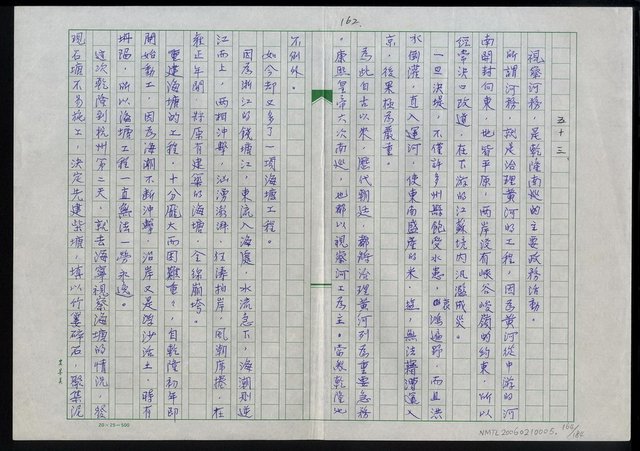 162.
五十三、
視察河務，是乾隆南巡的主要政務活動。
所謂河務，就是治理黃河的工程，因為黃河從中游的河
南開封向東，也皆平原，兩岸沒有峽谷峻嶺的約束，所以
經常決口改道，在下游的江蘇境內汎濫成災。
一旦決堤，不僅許多州縣飽受水患，哀鴻遍野，而且洪
水倒灌，直入運河，使東南盛產的米、鹽，無法藉漕運入
京，後果極為嚴重。
為此自古以來，歷代朝廷，都將治理黃河列為重要急務
。康熙皇帝六次南巡，也都以視察河工為主。當然乾隆也
不例外。
如今却又多了一項海塘工程。
因為浙江的錢塘江，東流入海處，水流急下，海潮則逆
江而上，兩相沖擊，洶湧澎湃，狂濤拍岸，風潮席捲，在
雍正年間，將原有建築的海塘，全線崩垮。
重建海塘的工程，十分龐大而困難重々，自乾隆初年即
開始動工，因為海潮不斷沖擊，沿岸又是浮沙活土，時有
坍陷，所以海塘工程一直無法一勞永逸。
這次乾隆到杭州第二天，就去海寧視察海塘的情況，發
現石塘不易施工，決定先建柴塘，填以竹簍碎石，聚集泥
20×25=500
NMTL20060210005.
166/184